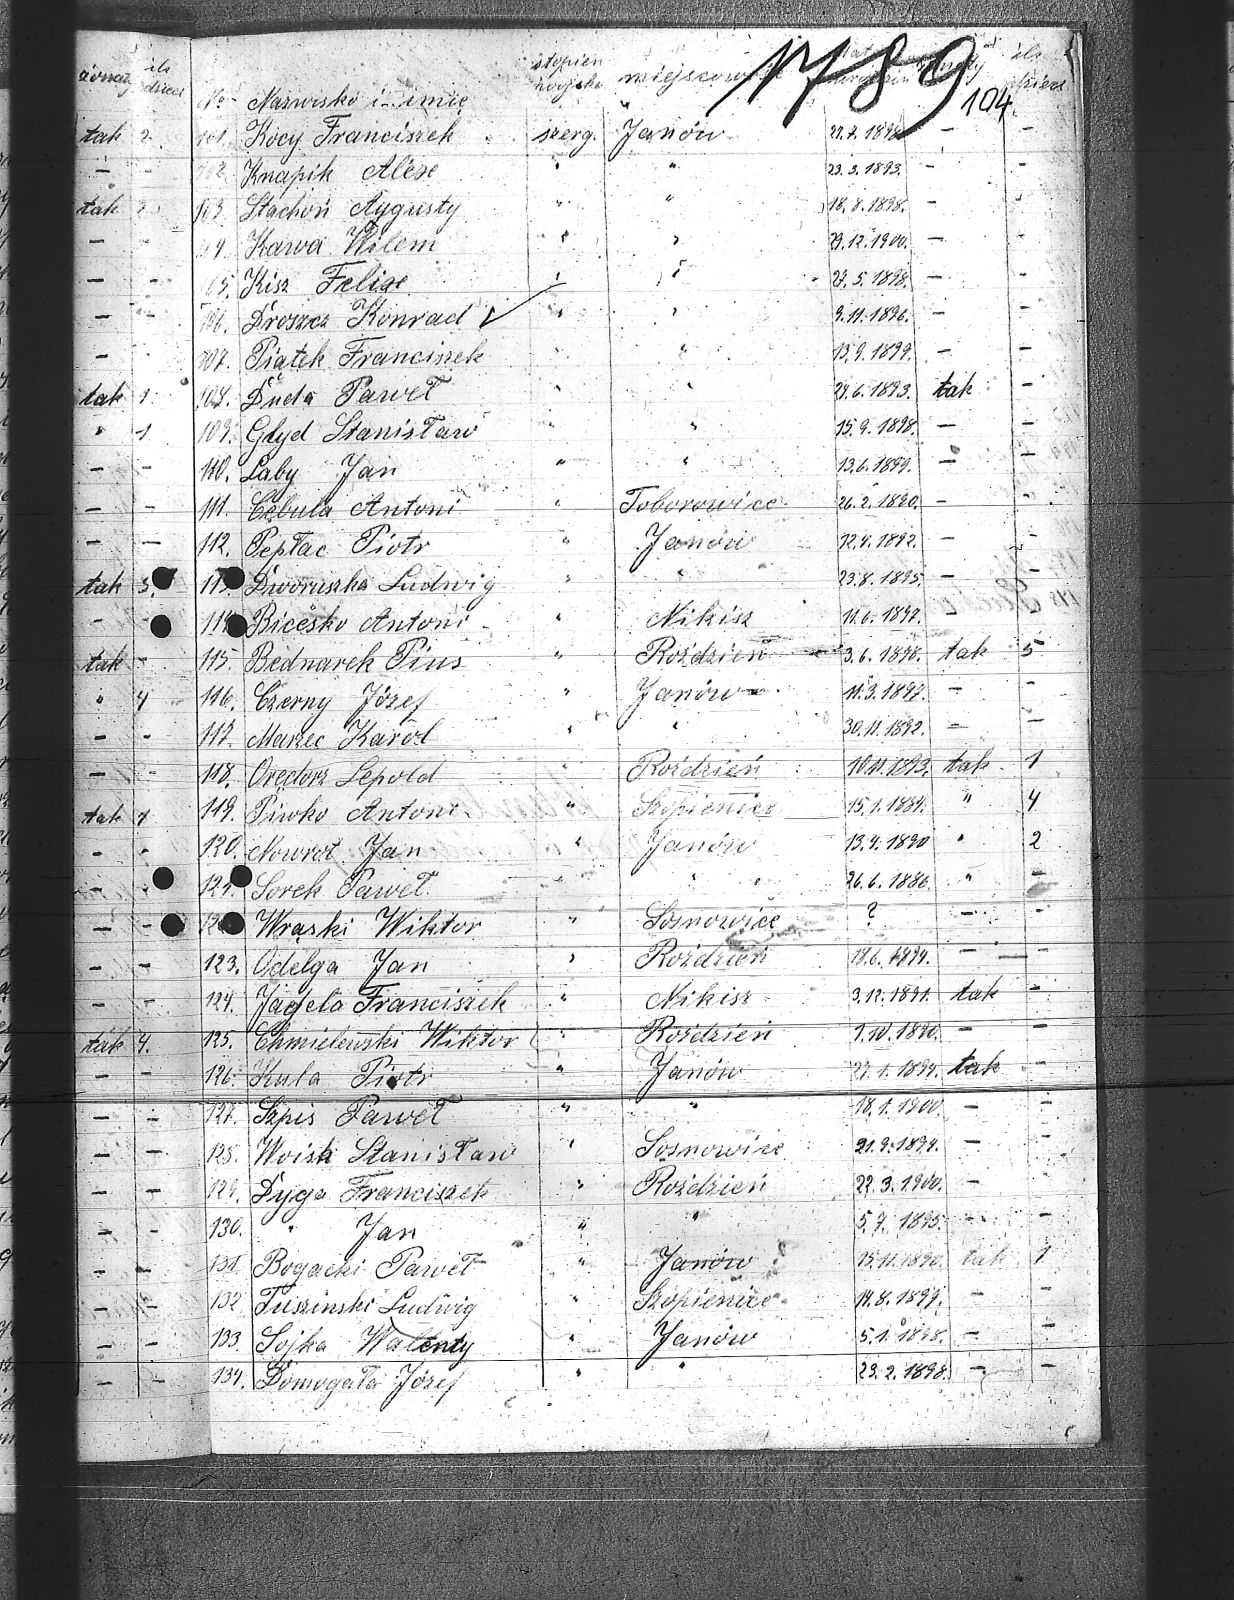 1789
104
No Nazwisko i imię stopień wojsk. miejscowość
tak 2 101. Kocy Franciszek szerg. Janów 27.7.1898 - -
- - 102. Knapik Alex " " 23.3.1893. - -
tak 2 103. Stachoń Aygusty " " 18.8.1898. - -
- - 104. Kawa Wilem " " 29.12.1900. - -
- - 105. Kisz Felixe " " 27.5.1898. - -
- - 106. Droszcz Konrad ✓ " " 9.11.1896. - -
- - 107. Piątek Franciszek " " 13.9.1899. - -
tak 1 108. Duda Paweł " " 24.6.1893. tak -
" 1 109. Glyd Stanisław " " 15.9.1898. - -
- - 110. Laby Jan " " 13.6.1899. - -
- - 111. Cebula Antoni " 26.2.1890. - -
- - 112. Pepłac Piotr " Janów 12.4.1892. - -
tak 3 113. Dworuszka Ludwig " " 23.8.1895. - -
- - 114. Biceśko Antoni " Nikisz 11.6.1897. - -
tak - 115. Bednarek Pius " Roździeń 3.6.1898. tak 5
" 4 116. Czerny Józef " Janów 11.3.1897. - -
- - 117. Marzec Karol " 30.11.1892. - -
- - 118. Oredorz Lepold Roździeń 10.11.1893. tak 1
tak 1 119. Piwko Antoni " Szopienice 15.1.1889. " 4
- - 120. Nowrot Jan " Janów 13.4.1890 " 2
- - 121. Sorek Paweł " " " 26.6.1886 " -
- - 122. Wrąski Wiktor " Sosnowice ? - -
- - 123. Odelga Jan " Roździeń 18.6.1894. - -
- - 124. Jageła Franciszek " Nikisz 3.12.1891. tak -
tak 4. 125. Chmielewski Wiktor " Roździeń 1.10.1890. - -
- - 126. Kula Piotr " Janów 27.1.1899. tak -
- - 127. Szpis Paweł " " 18.1.1900. - -
- - 125. Woisk Stanisław " Sosnowice 21.9.1894. - -
- - 129. Dyga Franciszek " Roździeń 22.3.1900. - -
- - 130. " Jan " " 5.7.1895. - -
- - 131. Bogacki Paweł " Janów 15.11.1890. tak 1
- - 132 Tuszinski Ludwig " Szopienice 14.8.1897. - -
- - 133. Sojka Walenty " Janów 5.1.1898. - -
- - 134. Domogała Józef " " 23.2.1898. - -